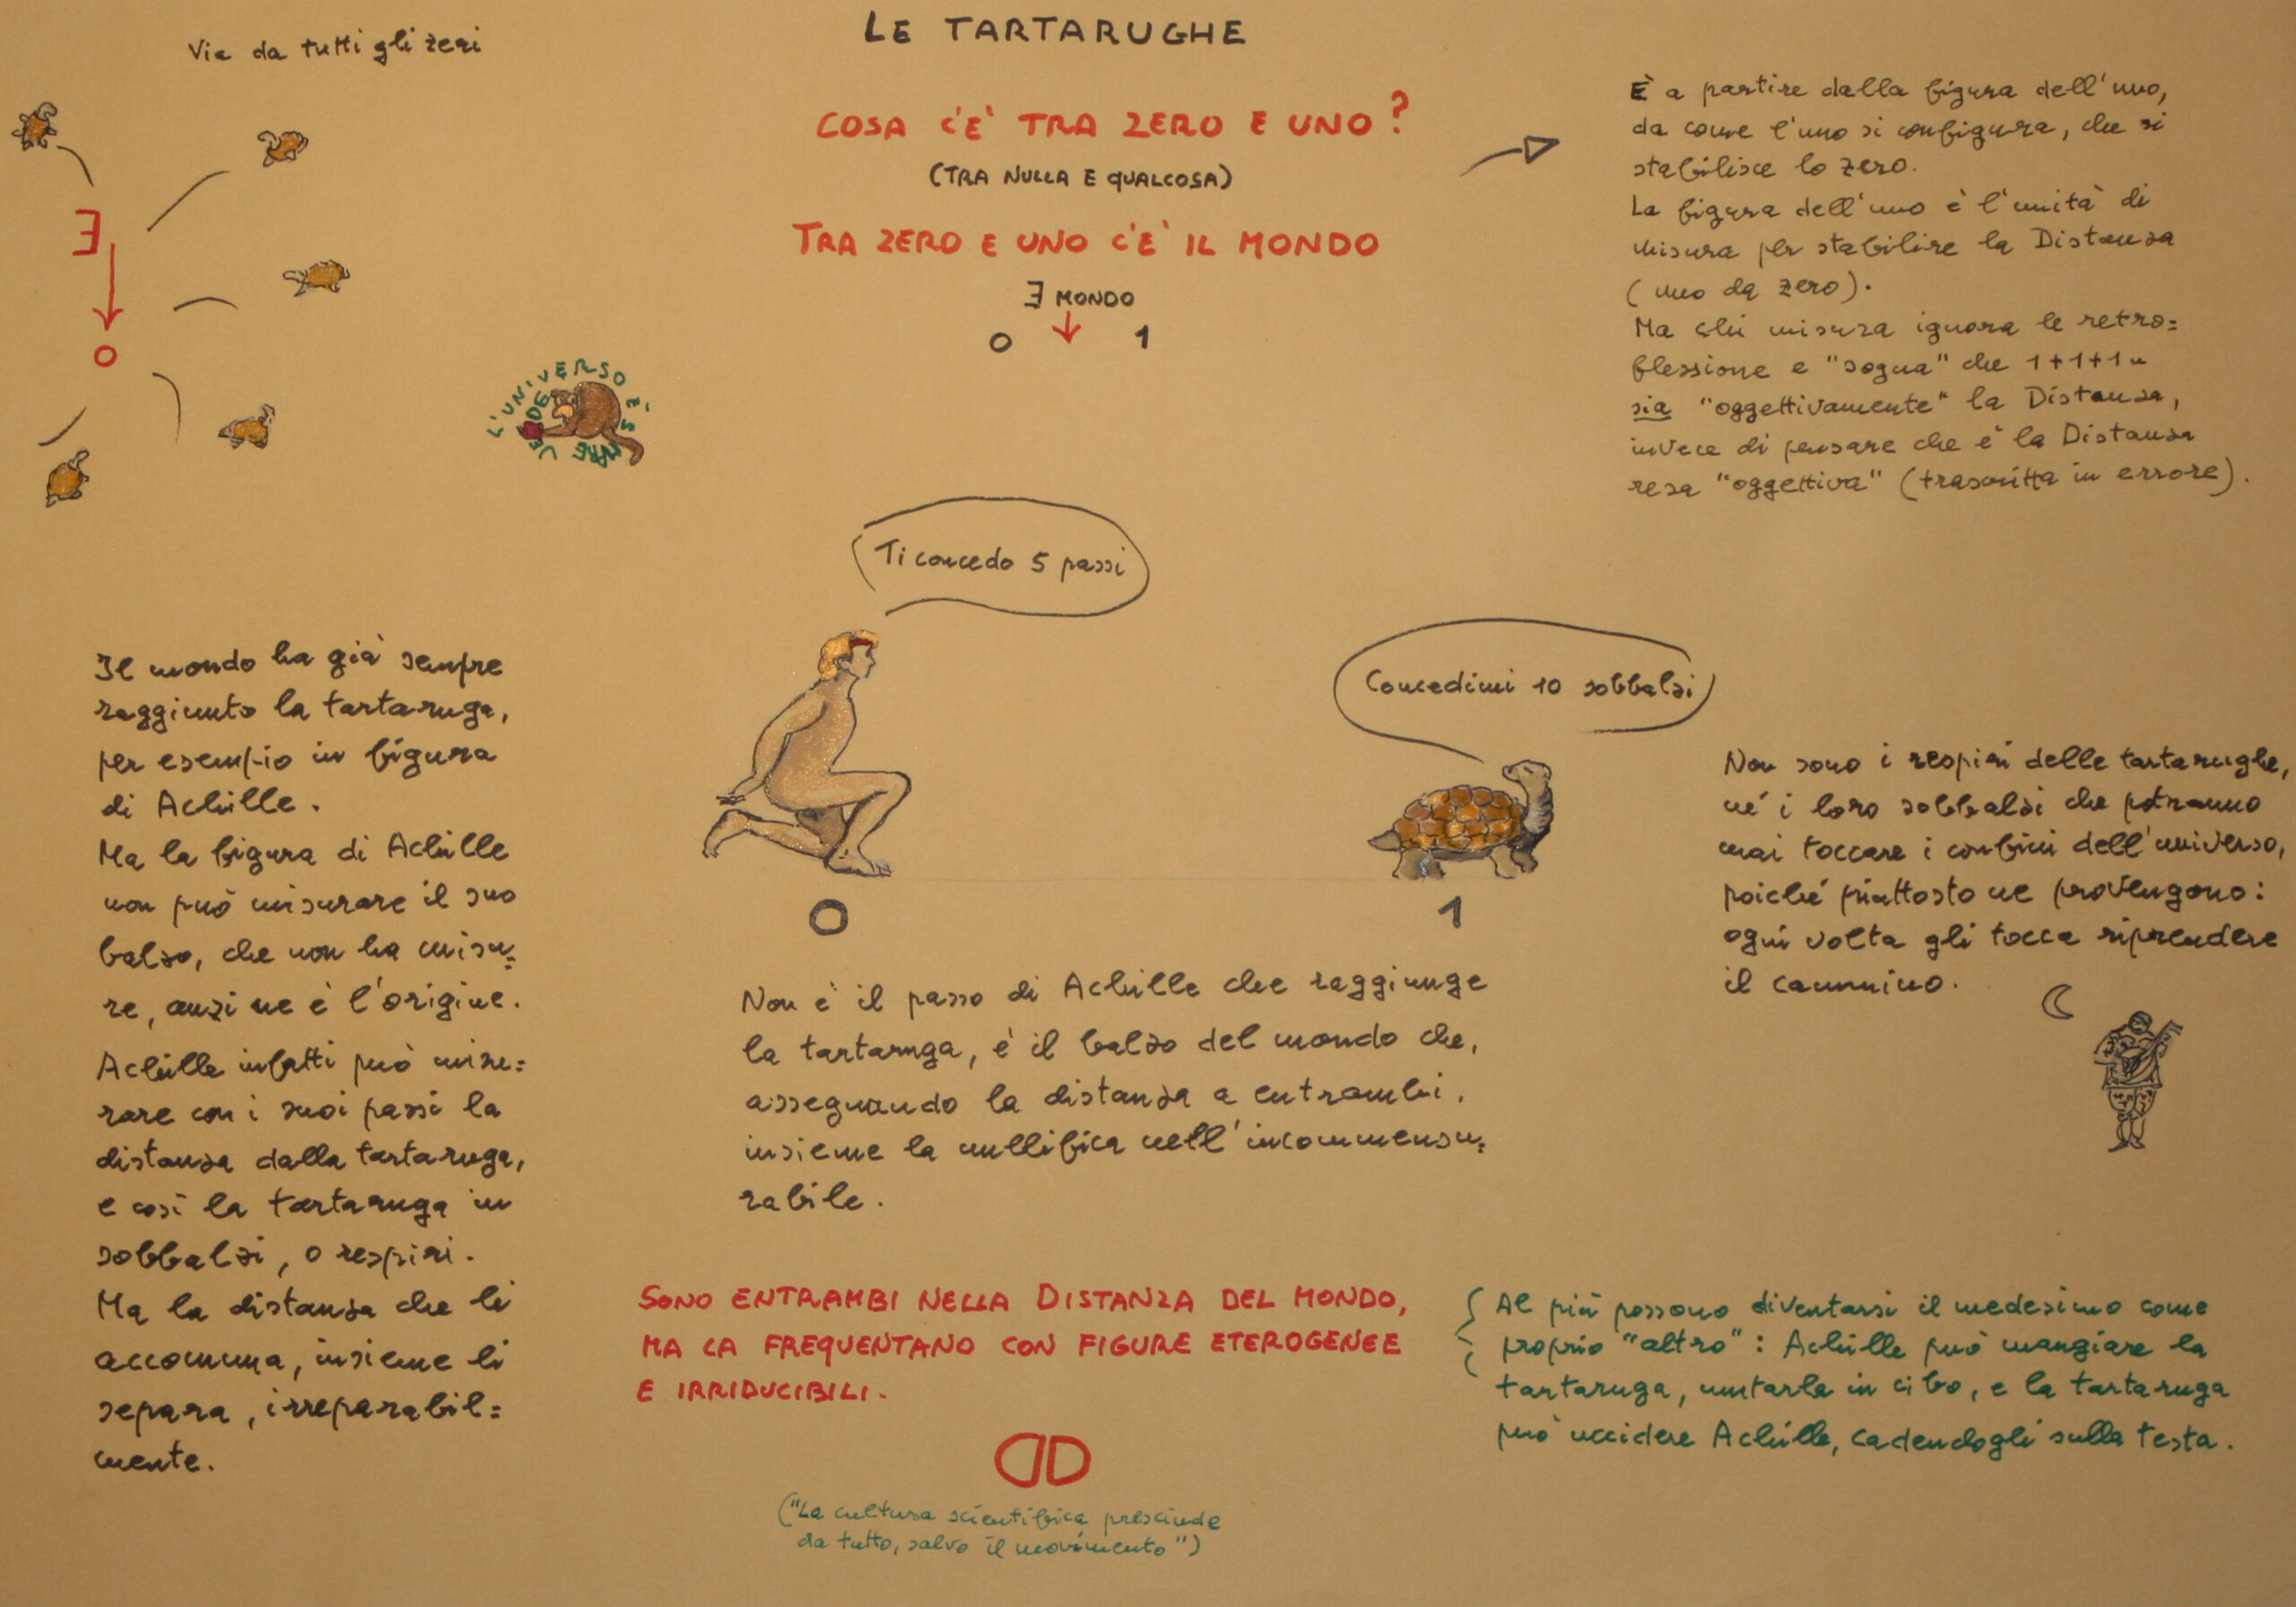 LE TARTARUGHE
Via da tutti gli zeri
COSA C'E' TRA ZERO E UNO?
(TRA NULLA E QUALCOSA)
TRA ZERO E UNO C'E' IL MONDO
∃ MONDO
↓
0 1
∃
↓
0
L'UNIVERSO È SEMPRE VERDE
È a partire dalla figura dell'uno,
da come l'uno si configura, che si
stabilisce lo zero.
La figura dell'uno è l'unità di
misura per stabilire la Distanza
(uno da zero).
Ma chi misura ignora le retro=
flessione e "sogna" che 1+1+1n
sia "oggettivamente" la Distanza,
invece di pensare che è la Distanza
resa "oggettiva" (trascritta in errore).
Ti concedo 5 passi
Concedimi 10 sobbalzi
0 1
Il mondo ha già sempre
raggiunto la tartaruga,
per esempio in figura
di Achille.
Ma la figura di Achille
non può misurare il suo
balzo, che non ha misu=
re, anzi ne è l'origine.
Achille infatti può misu=
rare con i suoi passi la
distanza dalla tartaruga,
e così la tartaruga in
sobbalzi, o respiri.
Ma la distanza che li
accomuna, insieme li
separa, irreparabil=
mente.
Non è il passo di Achille che raggiunge
la tartaruga, è il balzo del mondo che,
assegnando la distanza a entrambi,
insieme la nullifica nell'incommensu=
rabile.
Non sono i respiri delle tartarughe,
né i loro sobbalzi che potranno
mai toccare i confini dell'universo,
poiché piuttosto ne provengono:
ogni volta gli tocca riprendere
il cammino.
SONO ENTRAMBI NELLA DISTANZA DEL MONDO,
MA LA FREQUENTANO CON FIGURE ETEROGENEE
E IRRIDUCIBILI.
Al più possono diventarsi il medesimo come
proprio "altro": Achille può mangiare la
tartaruga, mutarla in cibo, e la tartaruga
può uccidere Achille, cadendogli sulla testa.
("La cultura scientifica prescinde
da tutto, salvo il movimento")